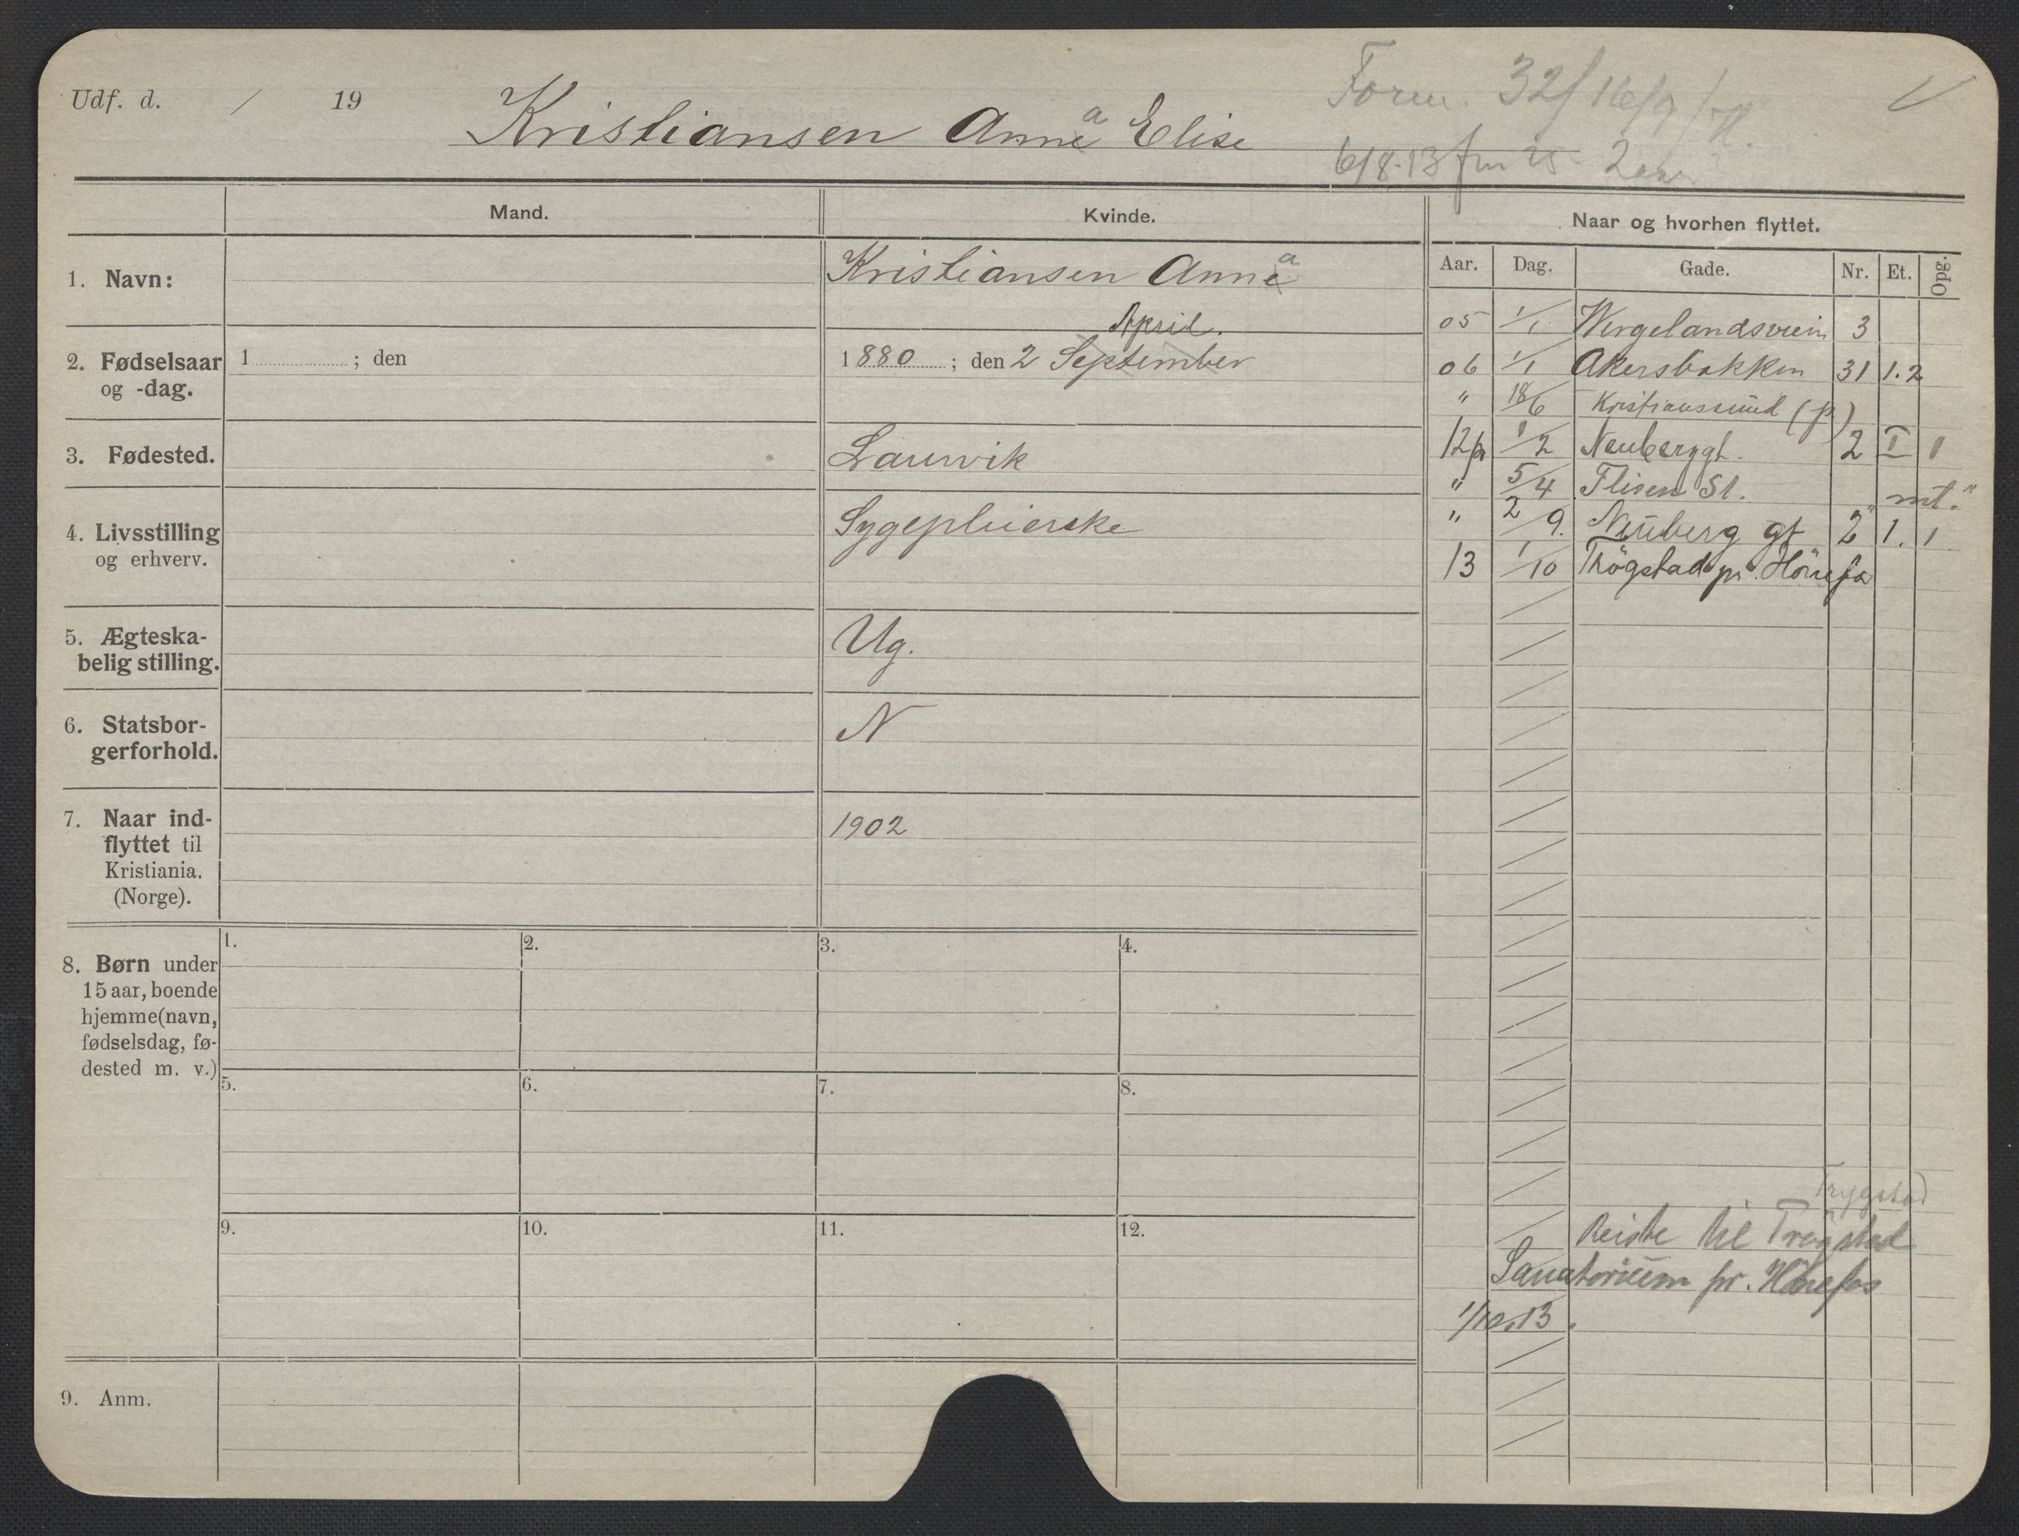 Udf. d. / 19
Kristiansen Anna Elise
Form. 32/ 16/9
6/8.13 fm 25
Mand.
Kvinde.
Naar og hvorhen flyttet.
Aar. Dag. Gade. Nr. Et. Opg.
1. Navn:
Kristiansen Anna
05 1/1 Wergelandsveien 3
April.
2. Fødselsaar og -dag.
1 ; den
1880 ; den 2 September
06 1/1 Akersbakken 31 1.2
" 18/6 Kristianssund (p)
3. Fødested.
Laurvik
12 1/2 Neuberggt. 2 I 1
" 5/4 Flisen St. mt."
4. Livsstilling og erhverv.
Sygepleierske
" 2/9. Neuberg gt 2 1. 1
13 1/10 Trøgstad pr. Hönefos
5. Ægteska-
belig stilling.
Ug.
6. Statsbor-
gerforhold.
N
7. Naar ind-
flyttet til
Kristiania.
(Norge).
1902
8. Børn under
15 aar, boende
hjemme(navn,
fødselsdag, fø-
dested m. v.)
1. 2. 3. 4.
5. 6. 7. 8.
9. 10. 11. 12.
Trygstad
Reiste til Trøgstad
Sanatorium pr. Hönefos
1/10.13.
9. Anm.